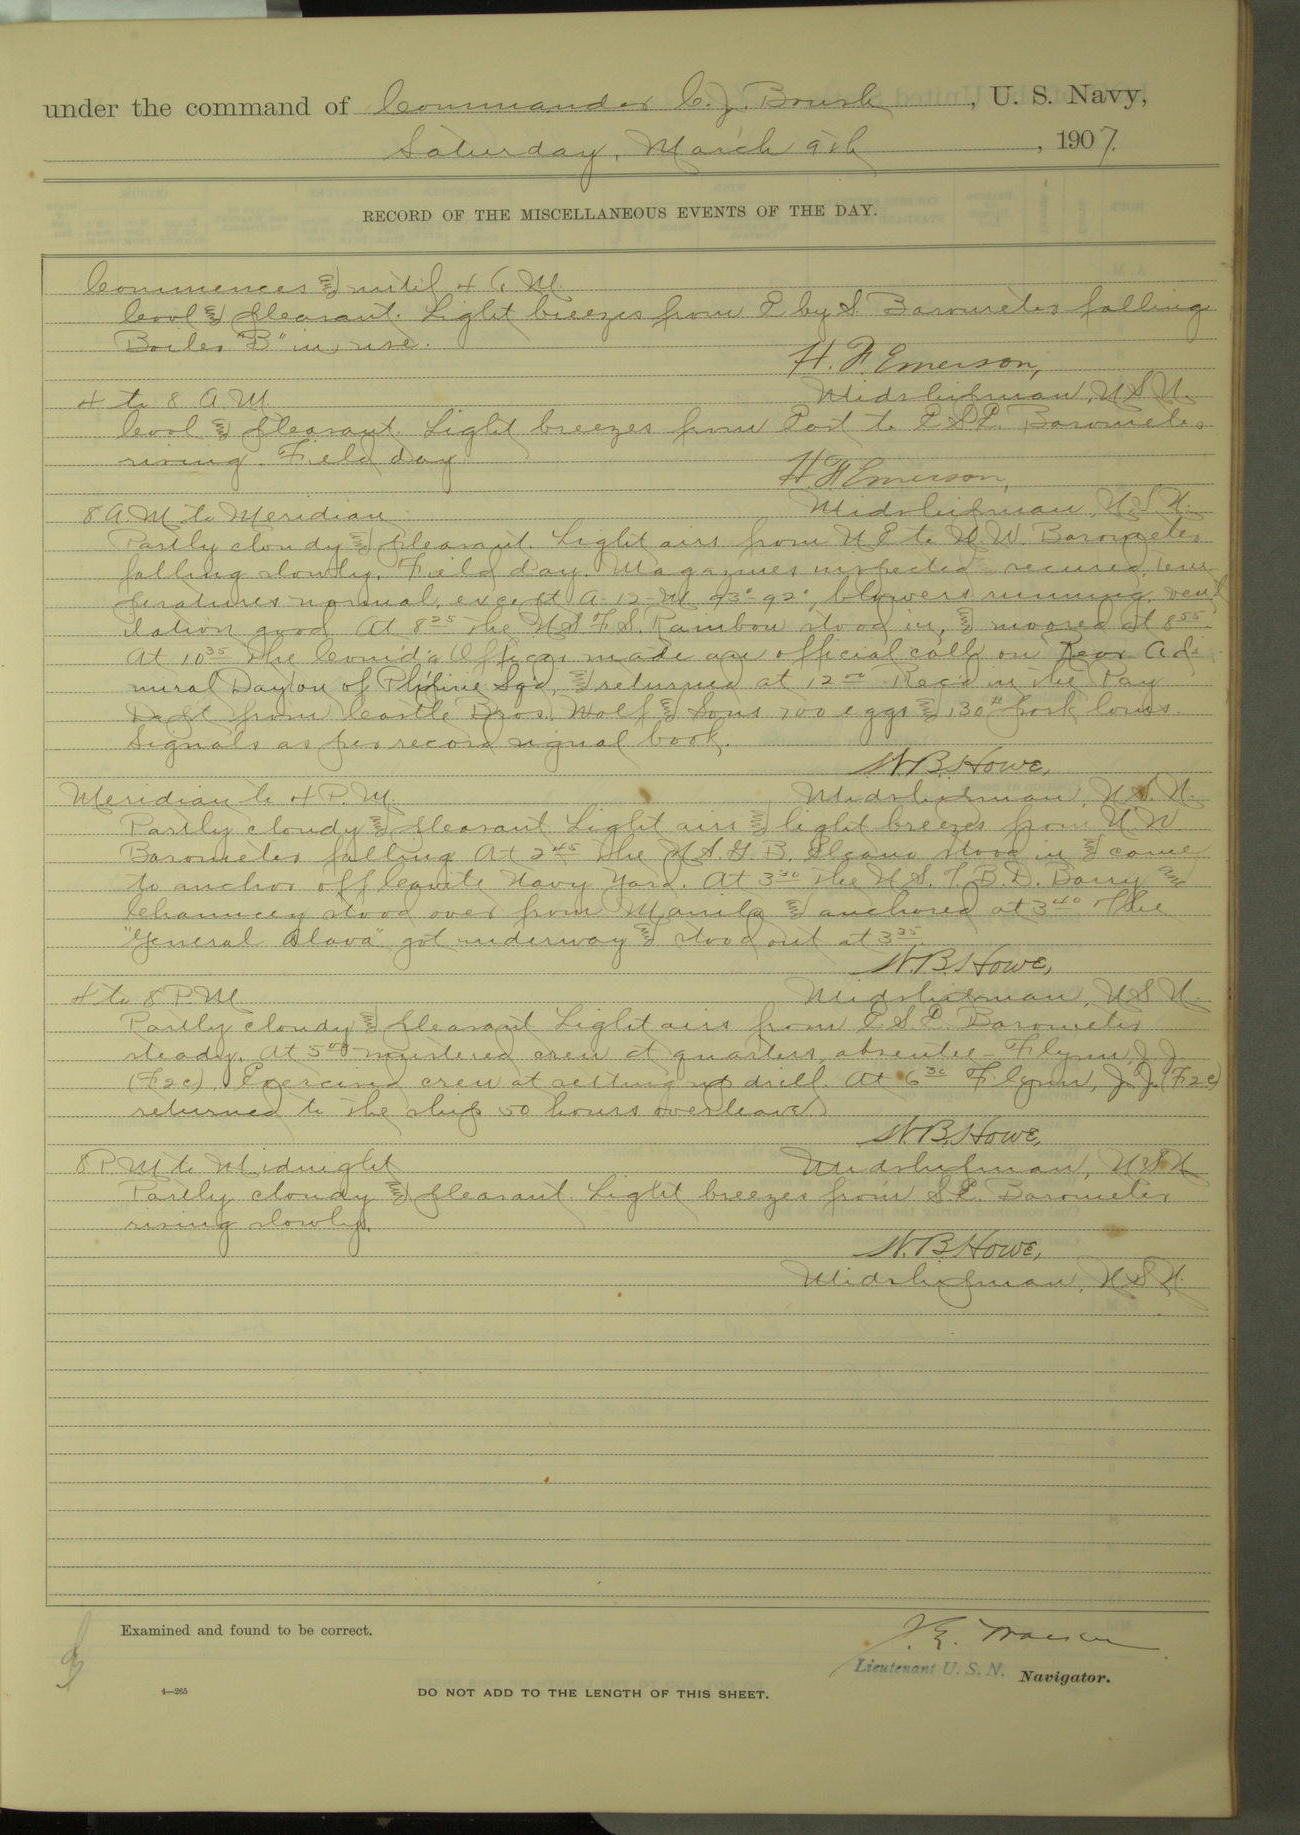 under the command of Commander C. J. Boush, U. S. Navy,
Saturday, March 9th, 1907.
RECORD OF THE MISCELLANEOUS EVENTS OF THE DAY.
Commences & until 4 A.M.
Cool & pleasant. Light breezes from E by S. Barometer falling
Boiler "B" in use.
H. F. Emerson,
Midshipman, U.S.N.
4 to 8 A.M.
Cool & pleasant. Light breezes from East to E.S.E. Barometer
rising. Field day.
H. F. Emerson,
Midshipman, U.S.N.
8 A.M. to Meridian
Partly cloudy & pleasant. Light airs from N.E. to N.W. Barometer
falling slowly. Field day. Magazines inspected - secured, tem-
peratures normal, except A-12-M 93°-92°, blowers running, venti-
lation good. At 8 25 the U.S.F.S. Rainbow stood in, & moored at 8 55.
At 10 35 the Comd'g Officer made an official call on Rear Ad-
miral Dayton of Phil'pine Sqd, & returned at 12 00. Rec'd in the Pay
Dept from Castle Bros. Wolf & Sons 700 eggs & 130# pork loins.
Signals as per record signal book.
W. B. Howe,
Midshipman, U.S.N.
Meridian to 4 P.M.
Partly cloudy & pleasant. Light airs & light breezes from N.W.
Barometer falling. At 2 45 the U.S.G.B. Elcano stood in & came
to anchor off Cavite Navy Yard. At 3 30 the U.S.T.B.D. Barry &
Chauncey stood over from Manila & anchored at 3 40. The
"General Alava" got underway & stood out at 3 35.
W. B. Howe,
Midshipman, U.S.N.
4 to 8 P.M.
Partly cloudy & pleasant. Light airs from E.S.E. Barometer
steady. At 5 00 mustered crew at quarters, absentee - Flynn, J.J.
(F2c). Exercised crew at setting up drill. At 6 30 Flynn, J.J. (F2c)
returned to the ship 50 hours overleave.
W. B. Howe,
Midshipman, U.S.N.
8 P.M. to Midnight
Partly cloudy & pleasant. Light breezes from S.E. Barometer
rising slowly.
W. B. Howe,
Midshipman, U.S.N.
Examined and found to be correct.
Lieutenant U. S. N. Navigator.
4—265
DO NOT ADD TO THE LENGTH OF THIS SHEET.